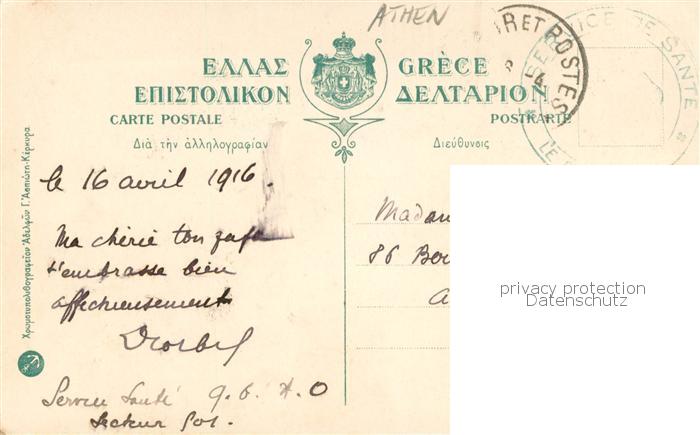 ATHEN
ΕΛΛΑΣ GRÈCE
ΕΠΙΣΤΟΛΙΚΟΝ ΔΕΛΤΑΡΙΟΝ
CARTE POSTALE POSTKARTE
Διὰ τὴν ἀλληλογραφίαν Διεύθυνσις
ET POSTES
DE SANTÉ
Χρωματυπολιθογραφεῖον Ἀδελφῶν Γ. Ἀσπιώτη-Κέρκυρα
le 16 avril 1916.
Ma chérie ton
t'embrasse bien
affectueusement
Service Santé
Secteur 501.
86
privacy protection
Datenschutz